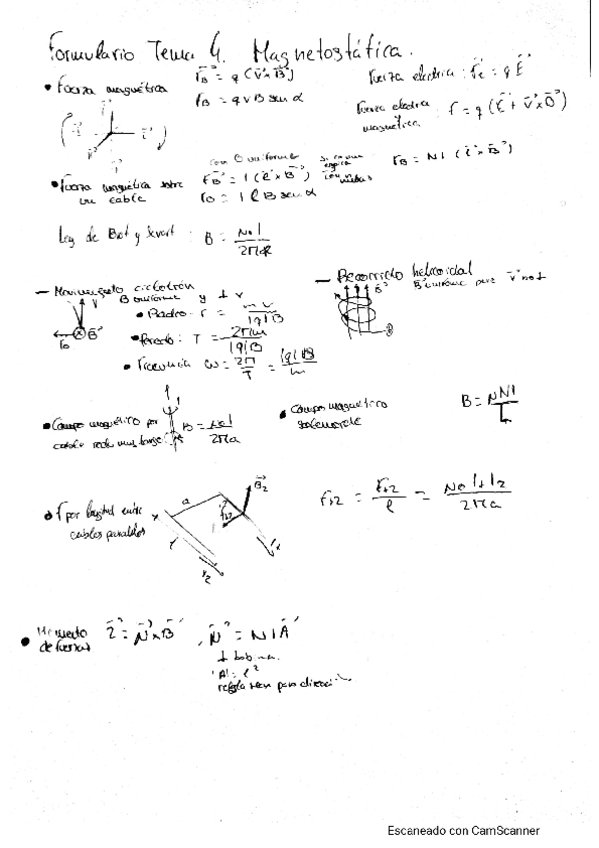 Formulario Tema 4. Magnetostática.
• Fuerza magnética F_B = q (v × B)
F_B = q v B sen α
Fuerza electrica: F_e = q E
Fuerza electro magnética: F = q (E + v × B)
• Fuerza magnética sobre un cable
con B uniforme
F_B = I (l × B)
F_B = I l B sen α
F_B = N I (l × B)
Ley de Biot y Savart: B = μ₀ I / 2πR
— Movimiento ciclotrón
B uniforme y ⊥ v
• Radio: r = m v / |q| B
• Periodo: T = 2πm / |q| B
• Frecuencia ω = 2π / T = |q| B / m
— Recorrido helicoidal
B uniforme pero v no ⊥
• Campo magnético por cable recto muy largo: B = μ₀ I / 2πa
• Campo magnético solenoide
B = μ N I / L
• F por longitud entre cables paralelos
a
l
I₂
B₂
F₁₂ = F₁₂ / l = μ₀ I₁ I₂ / 2πa
• Momento de fuerzas
τ = μ × B, μ = N I A
⊥ bobina.
|A| = l²
Escaneado con CamScanner